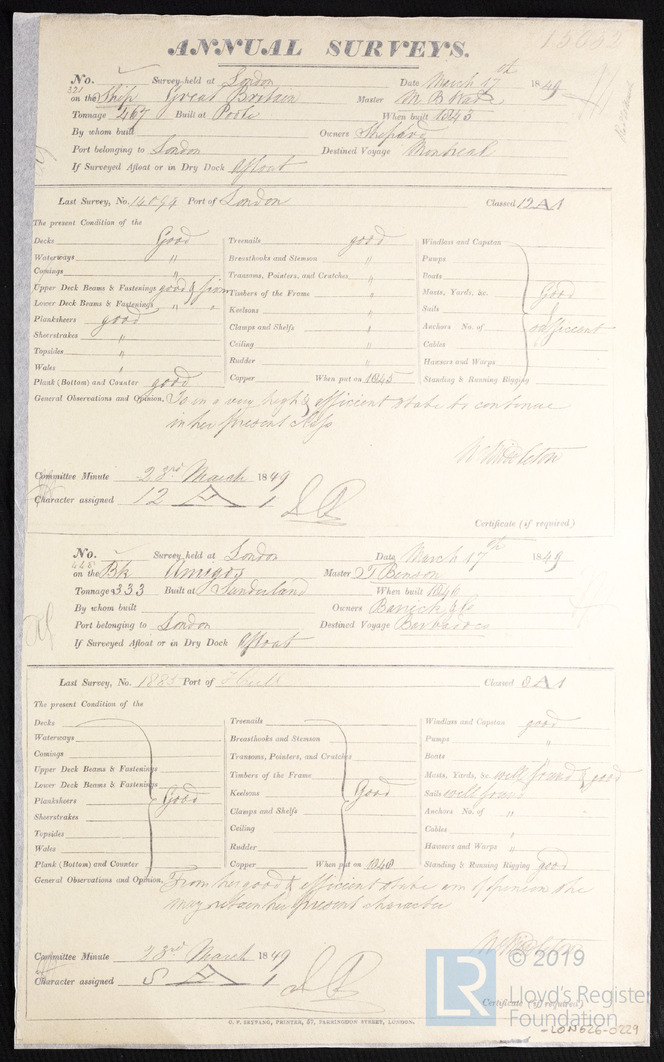 15652
ANNUAL SURVEYS.
No. Survey held at London Date March 17th 1849
321 on the Ship Great Britain Master
Tonnage 467 Built at Poole When built 1845
By whom built Owners Shepard
Port belonging to London Destined Voyage Montreal
If Surveyed Afloat or in Dry Dock Afloat
Last Survey, No. 14094 Port of London Classed 12 A 1
The present Condition of the
Decks Good Treenails good Windlass and Capstan
Waterways " Breasthooks and Stemson " Pumps
Comings " Transoms, Pointers, and Crutches " Boats
Upper Deck Beams & Fastenings good & firm Timbers of the Frame " Masts, Yards, &c. Good
Lower Deck Beams & Fastenings " " Keelsons " Sails &
Planksheers good Clamps and Shelfs " Anchors No. of sufficient
Sheerstrakes " Ceiling " Cables "
Topsides " Rudder " Hawsers and Warps
Wales " Copper When put on 1845 Standing & Running Rigging
Plank (Bottom) and Counter good
General Observations and Opinion, Is in a very high & efficient state to continue
in her present Class
Committee Minute 23rd March 1849
Character assigned 12 A 1
Certificate (if required)
No. Survey held at London Date March 17th 1849
on the Bk Amigos Master T Benson
Tonnage 333 Built at Sunderland When built 1846
By whom built Owners
Port belonging to London Destined Voyage Barbadoes
If Surveyed Afloat or in Dry Dock Afloat
Last Survey, No. 1885 Port of Hull Classed 8 A 1
The present Condition of the
Decks Treenails Windlass and Capstan good
Waterways Breasthooks and Stemson Pumps "
Comings Transoms, Pointers, and Crutches Boats "
Upper Deck Beams & Fastenings Timbers of the Frame Masts, Yards, &c. well found & good
Lower Deck Beams & Fastenings Keelsons Good Sails well found
Planksheers Good Clamps and Shelfs Anchors No. of "
Sheerstrakes Ceiling Cables "
Topsides Rudder Hawsers and Warps "
Wales Copper When put on 1846 Standing & Running Rigging good
Plank (Bottom) and Counter
General Observations and Opinion, From her good & efficient state am of opinion she
may retain her present character
Committee Minute 23rd March 1849
Character assigned 8 A 1
Certificate (if required)
LR © 2019
Lloyd's Register
Foundation
LON626-0229